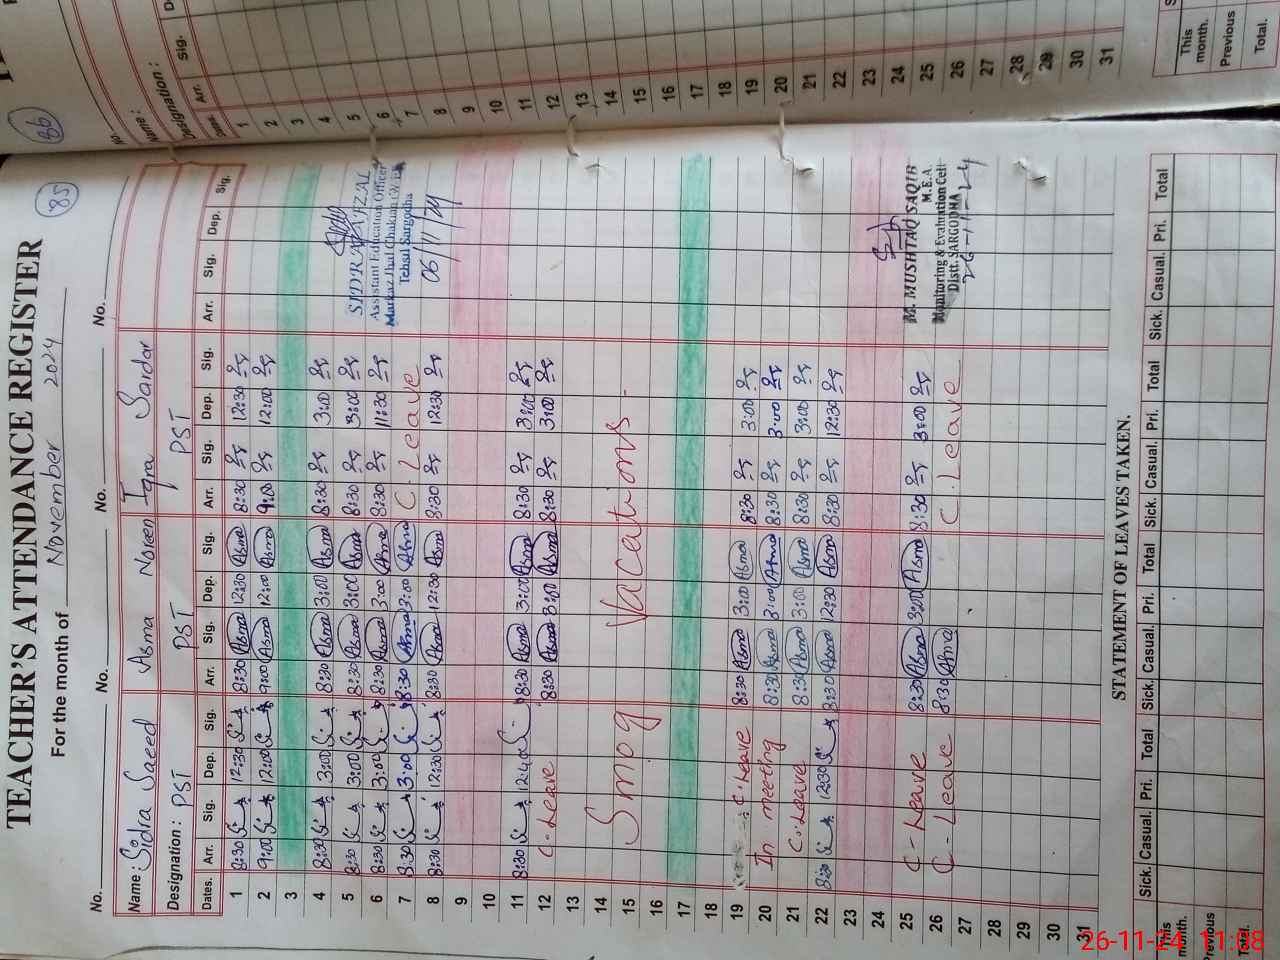 85
TEACHER'S ATTENDANCE REGISTER
For the month of November 2024
No. No. No. No.
Name: Sidra Saeed Asma Noreen Iqra Sardar
Designation: PST PST PST
Dates. Arr. Sig. Dep. Sig. Arr. Sig. Dep. Sig. Arr. Sig. Dep. Sig. Arr. Sig. Dep. Sig.
1 8:30 12:30 8:30 Asma 12:30 Asma 8:30 12:30
2 9:00 12:00 9:00 Asma 12:00 Asma 9:00 12:00
3
4 8:30 3:00 8:30 Asma 3:00 Asma 8:30 3:00
5 8:30 3:00 8:30 Asma 3:00 Asma 8:30 3:00
6 8:30 3:00 8:30 Asma 3:00 Asma 8:30 11:30
7 8:30 3:00 8:30 Asma 3:00 Asma C. Leave
8 8:30 12:30 8:30 Asma 12:30 Asma 8:30 12:30
SIDRA AFZAL
Assistant Education Officer
Markaz Jhal Chakian
Tehsil Sargodha
06/11/24
9
10
11 8:30 12:40 8:30 Asma 3:00 Asma 8:30 3:00
12 C. Leave 8:30 Asma 3:00 Asma 8:30 3:00
13
14
15 Smog Vaccations.
16
17
18
19 C. Leave 8:30 Asma 3:00 Asma 8:30 3:00
20 In meeting 8:30 Asma 3:00 Asma 8:30 3:00
21 C. Leave 8:30 Asma 3:00 Asma 8:30 3:00
22 8:30 12:30 8:30 Asma 12:30 Asma 8:30 12:30
23
24
25 C. Leave 8:30 Asma 3:00 Asma 8:30 3:00
26 C. Leave 8:30 Asma C. Leave
M. MUSHTAQ SAQIB
M.E.A.
Monitoring & Evaluation Cell
Distt. SARGODHA
26-11-24
27
28
29
30
31
STATEMENT OF LEAVES TAKEN.
Sick. Casual. Pri. Total Sick. Casual. Pri. Total Sick. Casual. Pri. Total Sick. Casual. Pri. Total
This month.
Previous
Total.
86
No.
Name:
Designation:
Dates. Arr. Sig.
1
2
3
4
5
6
7
8
9
10
11
12
13
14
15
16
17
18
19
20
21
22
23
24
25
26
27
28
29
30
31
This month.
Previous
Total.
26-11-24 11:08